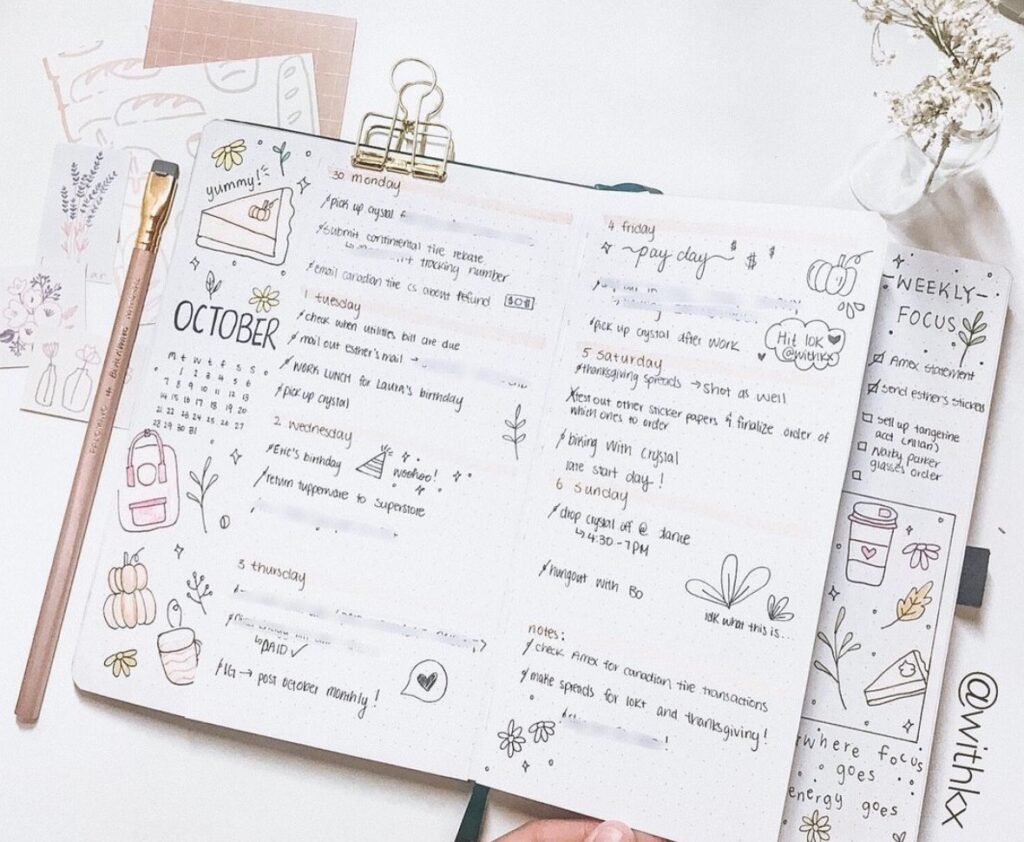 yummy!
OCTOBER
M T W T F S S
1 2 3 4 5 6
7 8 9 10 11 12 13
14 15 16 17 18 19 20
21 22 23 24 25 26 27
28 29 30 31
30 monday
pick up crystal
submit continental tire rebate
tracking number
email canadian tire cs about refund $0$
1 tuesday
check when utilities bill are due
mail out esther's mail →
WORK LUNCH for Laura's birthday
pick up crystal
2 wednesday
Eric's birthday woohoo!
return tupperware to superstore
3 thursday
↳ PAID ✓
IG → post october monthly!
4 friday
~pay day~ $ $ $
pick up crystal after work
Hit 10K
@withkx
5 saturday
thanksgiving spreads → shot as well
test out other sticker papers & finalize order of
which ones to order
biking with crystal
late start day!
6 sunday
drop crystal off @ dance
↳ 4:30 - 7PM
hungout with Bo
idk what this is...
notes:
check Amex for canadian tire transactions
make spreads for 10k and thanksgiving!
WEEKLY
FOCUS
Amex statement
send esther's stickers
sell up tangerine
acct (Milan)
Warby parker
glasses order
where focus
goes
energy goes
@withkx